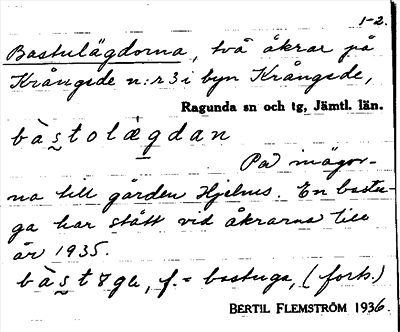 1-2.
Bastulägdorna, två åkrar på
Krångede n:r 3 i byn Krångede,
Ragunda sn och tg, Jämtl. län.
bàs̰tolægdan
På inägor-
na till gården Hjelms. En bastu-
ga har stått vid åkrarna till
år 1935.
f. = bastuga, (forts.)
BERTIL FLEMSTRÖM 1936.